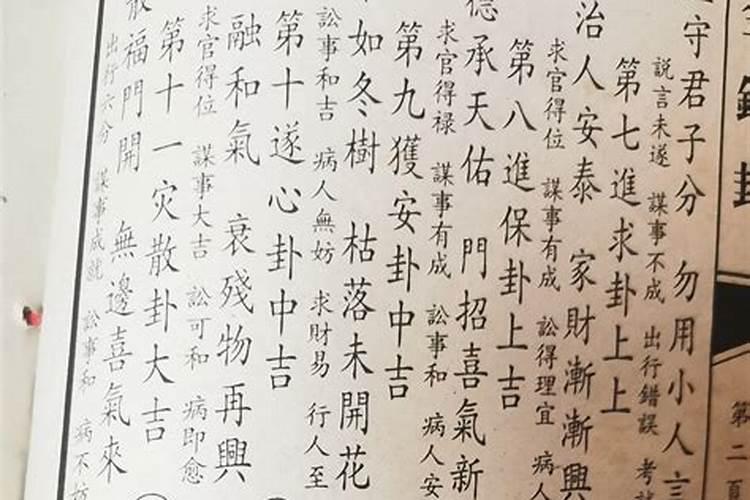 守君子分 勿用小人言
説言未遂 謀事不成 出行錯誤
第七進求卦上上
治人安泰 家財漸漸興
求官得位 謀事有成 訟得理宜 病人
第八進保卦上吉
承天佑 門招喜氣新
求官得禄 謀事有成 訟事和 病人安
第九獲安卦中吉
如冬樹 枯落未開花
訟事和吉 病人無妨 求財易 行人至
第十遂心卦中吉
融和氣 衰殘物再興
求官得位 謀事大吉 訟可和 病即愈
第十一灾散卦大吉
福門開 無邊喜氣來
出行六分 謀事成就 訟事和 病不妨
第二